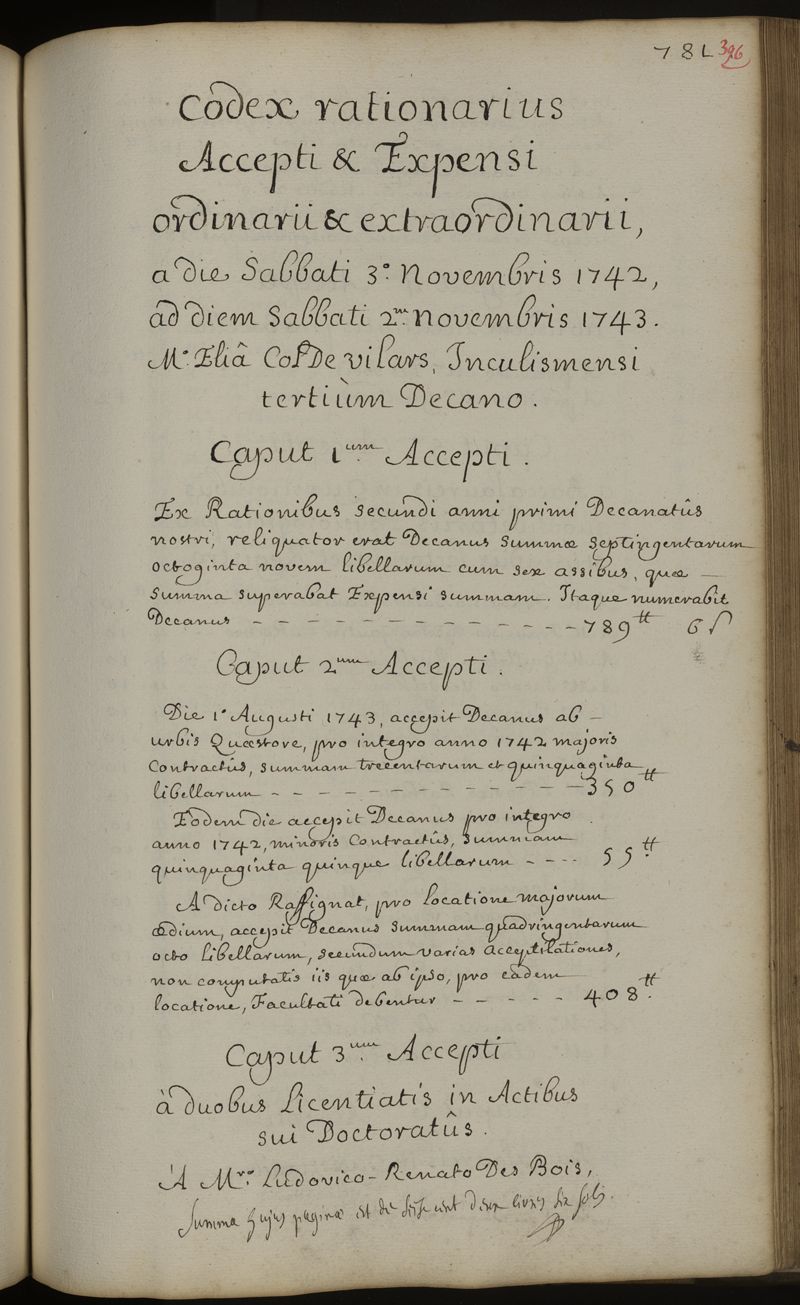 781 396
Codex rationarius
Accepti & Expensi
ordinarii & extraordinarii,
a die Sabbati 3.° Novembris 1742,
ad diem Sabbati 2.um Novembris 1743.
M.° Eliâ Col De vilars, Inculismensi
tertiùm Decano.
Caput 1.um Accepti.
Ex Rationibus secundi anni primi Decanatûs
nostri, reliquator erat Decanus summæ septingentarum
octoginta novem libellarum cum sex assibus, quæ —
summa superabat Expensi summam. Itaque numerabit
Decanus — — — — — — — — — — — — 789tt 6ſ
Caput 2.um Accepti.
Die 1.° Augusti 1743, accepit Decanus ab —
urbis Quæstore, pro integro anno 1742 majoris
Contractûs, summam trecentarum et quinquaginta
libellarum — — — — — — — — — — — 350tt
Eodem die accepit Decanus pro integro
anno 1742, minoris Contractûs, summam
quinquaginta quinque libellarum — — — 55.tt
A dicto Raffignat, pro locatione majorum
ædium, accepit Decanus summam quadringentarum
octo libellarum, secundum varias acceptilationes,
non computatis iis quæ ab ipso, pro eadem
locatione, Facultati debentur — — — — — 408.tt
Caput 3.um Accepti
à duobus Licentiatis in Actibus
sui Doctoratûs.
A M.ro Ludovico-Renato Des Bois,
Summa hujus paginæ est de seize cent deux livres six sols.